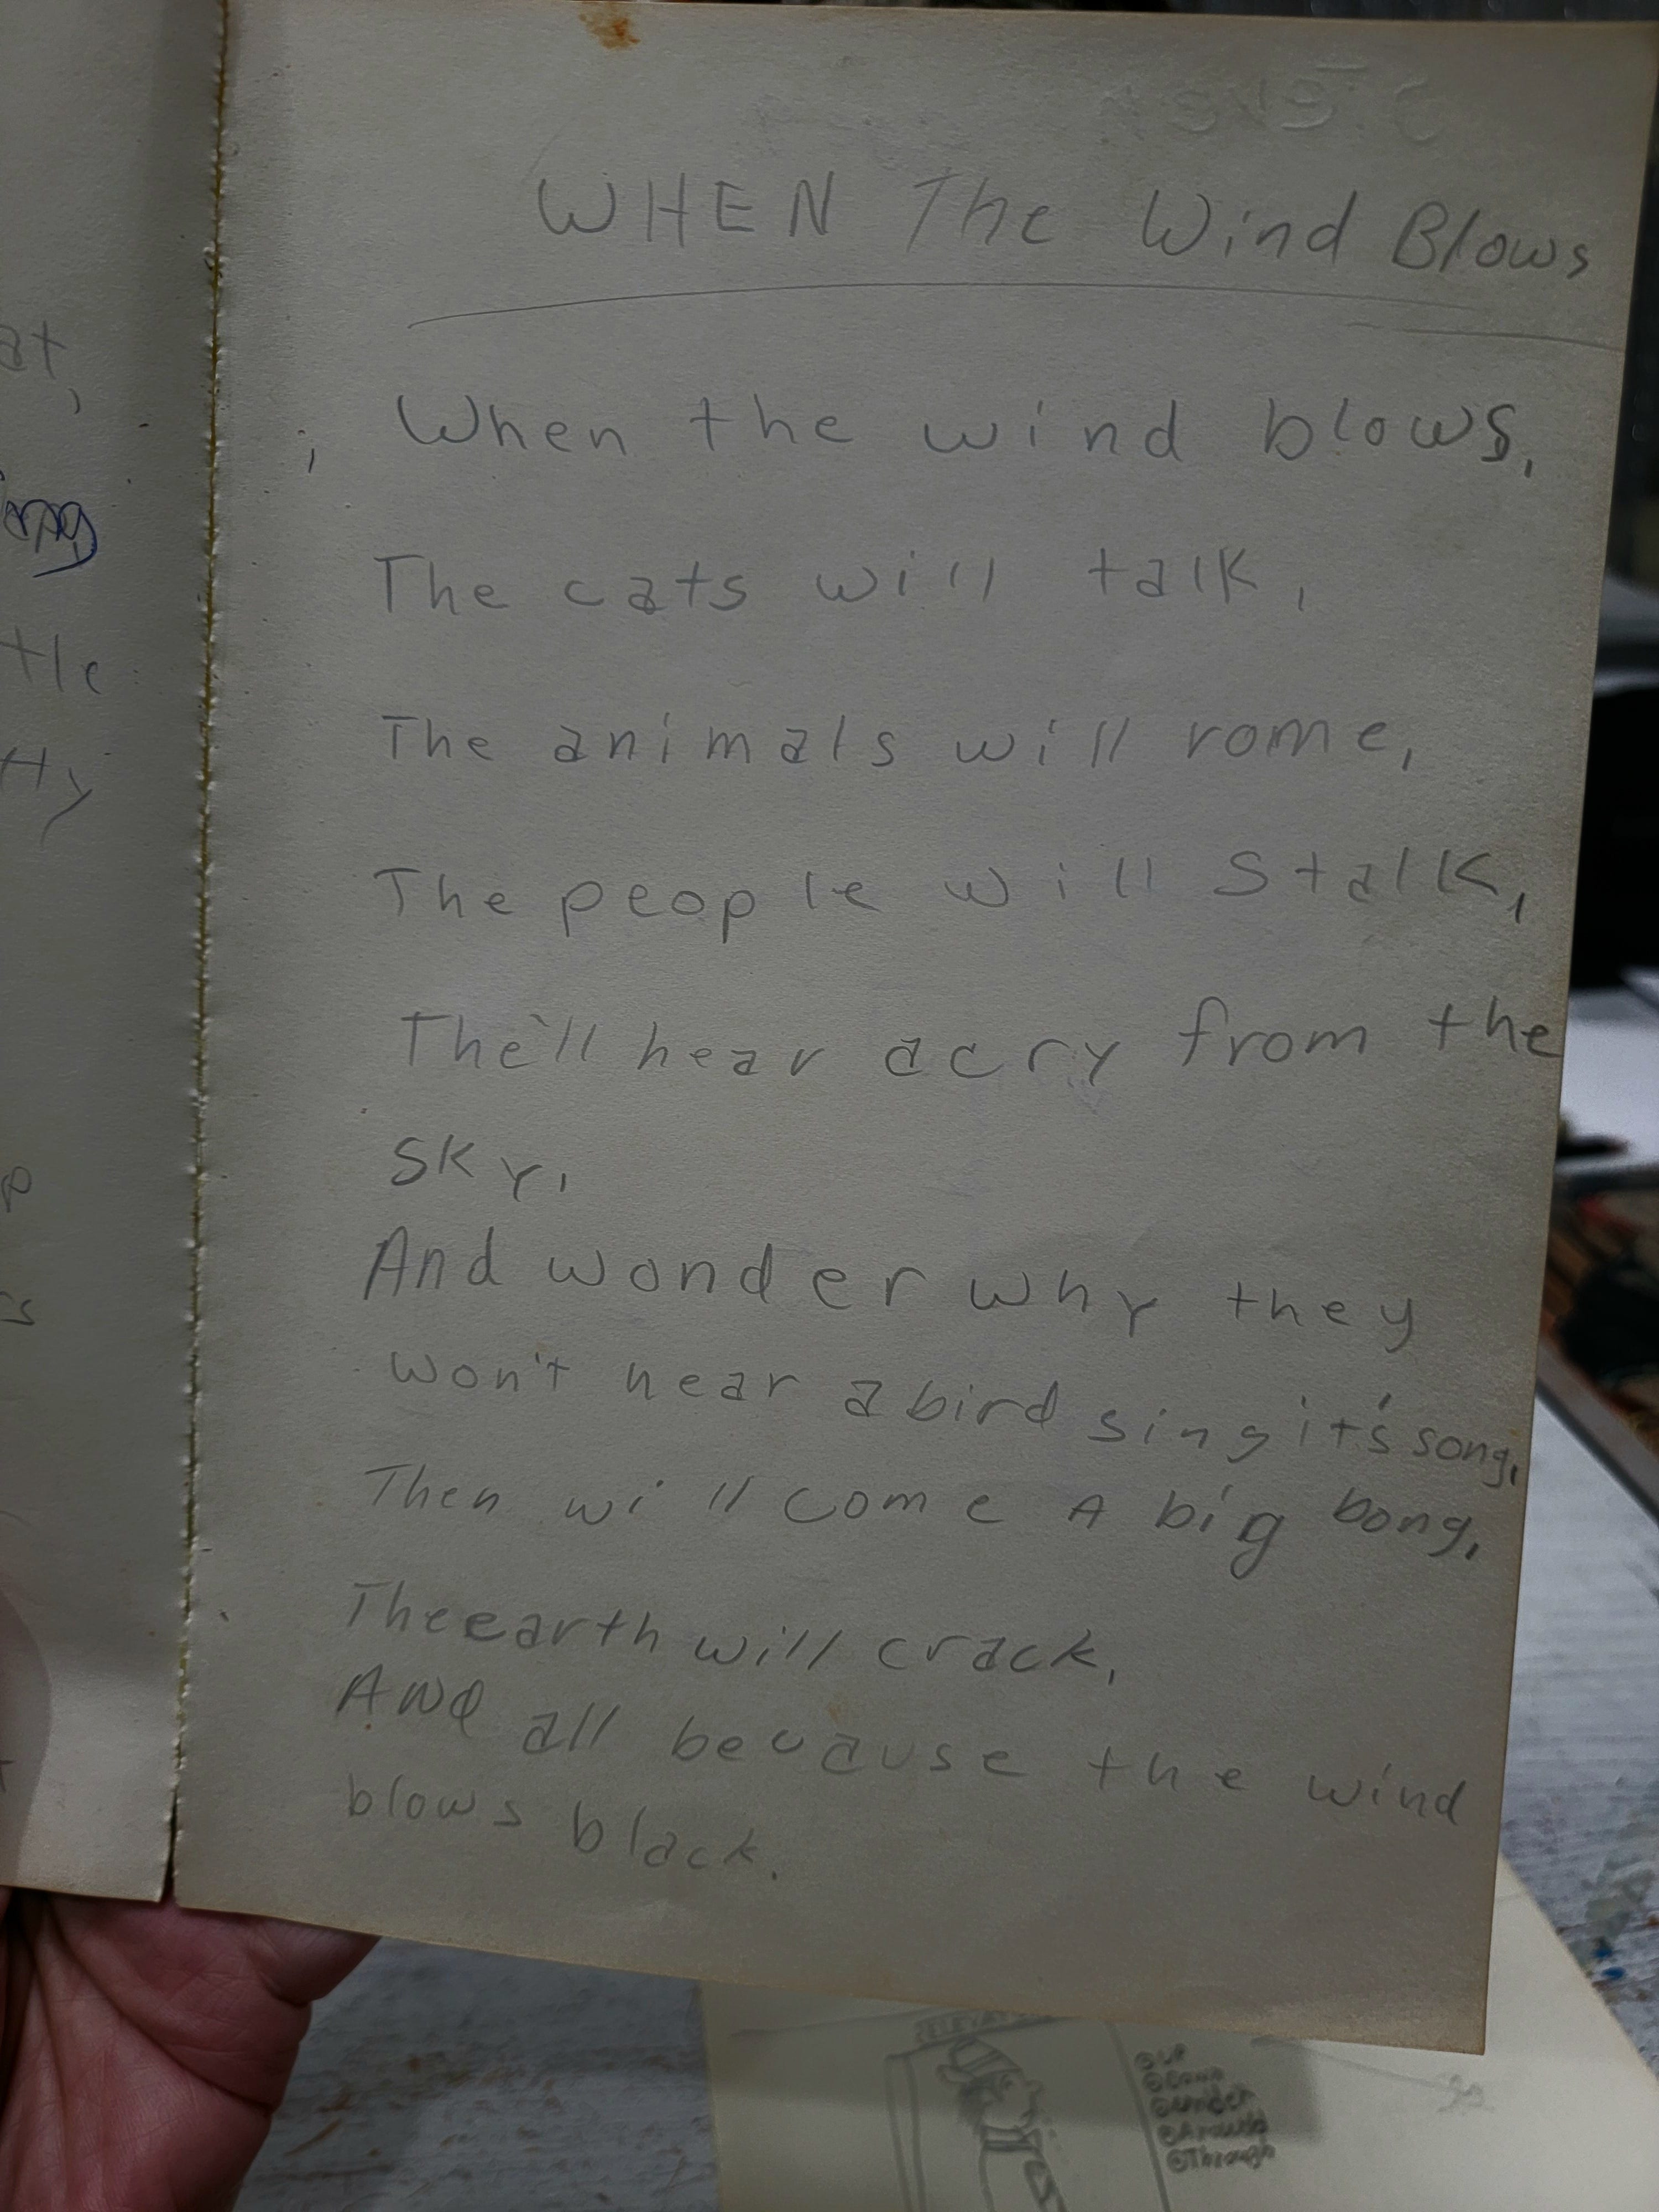 WHEN The Wind Blows
When the wind blows,
The cats will talk,
The animals will rome,
The people will stalk,
The'll hear a cry from the
sky,
And wonder why they
won't hear a bird sing it's song,
Then will come A big bong,
The earth will crack,
AND all because the wind
blows black.
at,
tle
p
s
@UP
@Down
@under
@Around
@Through